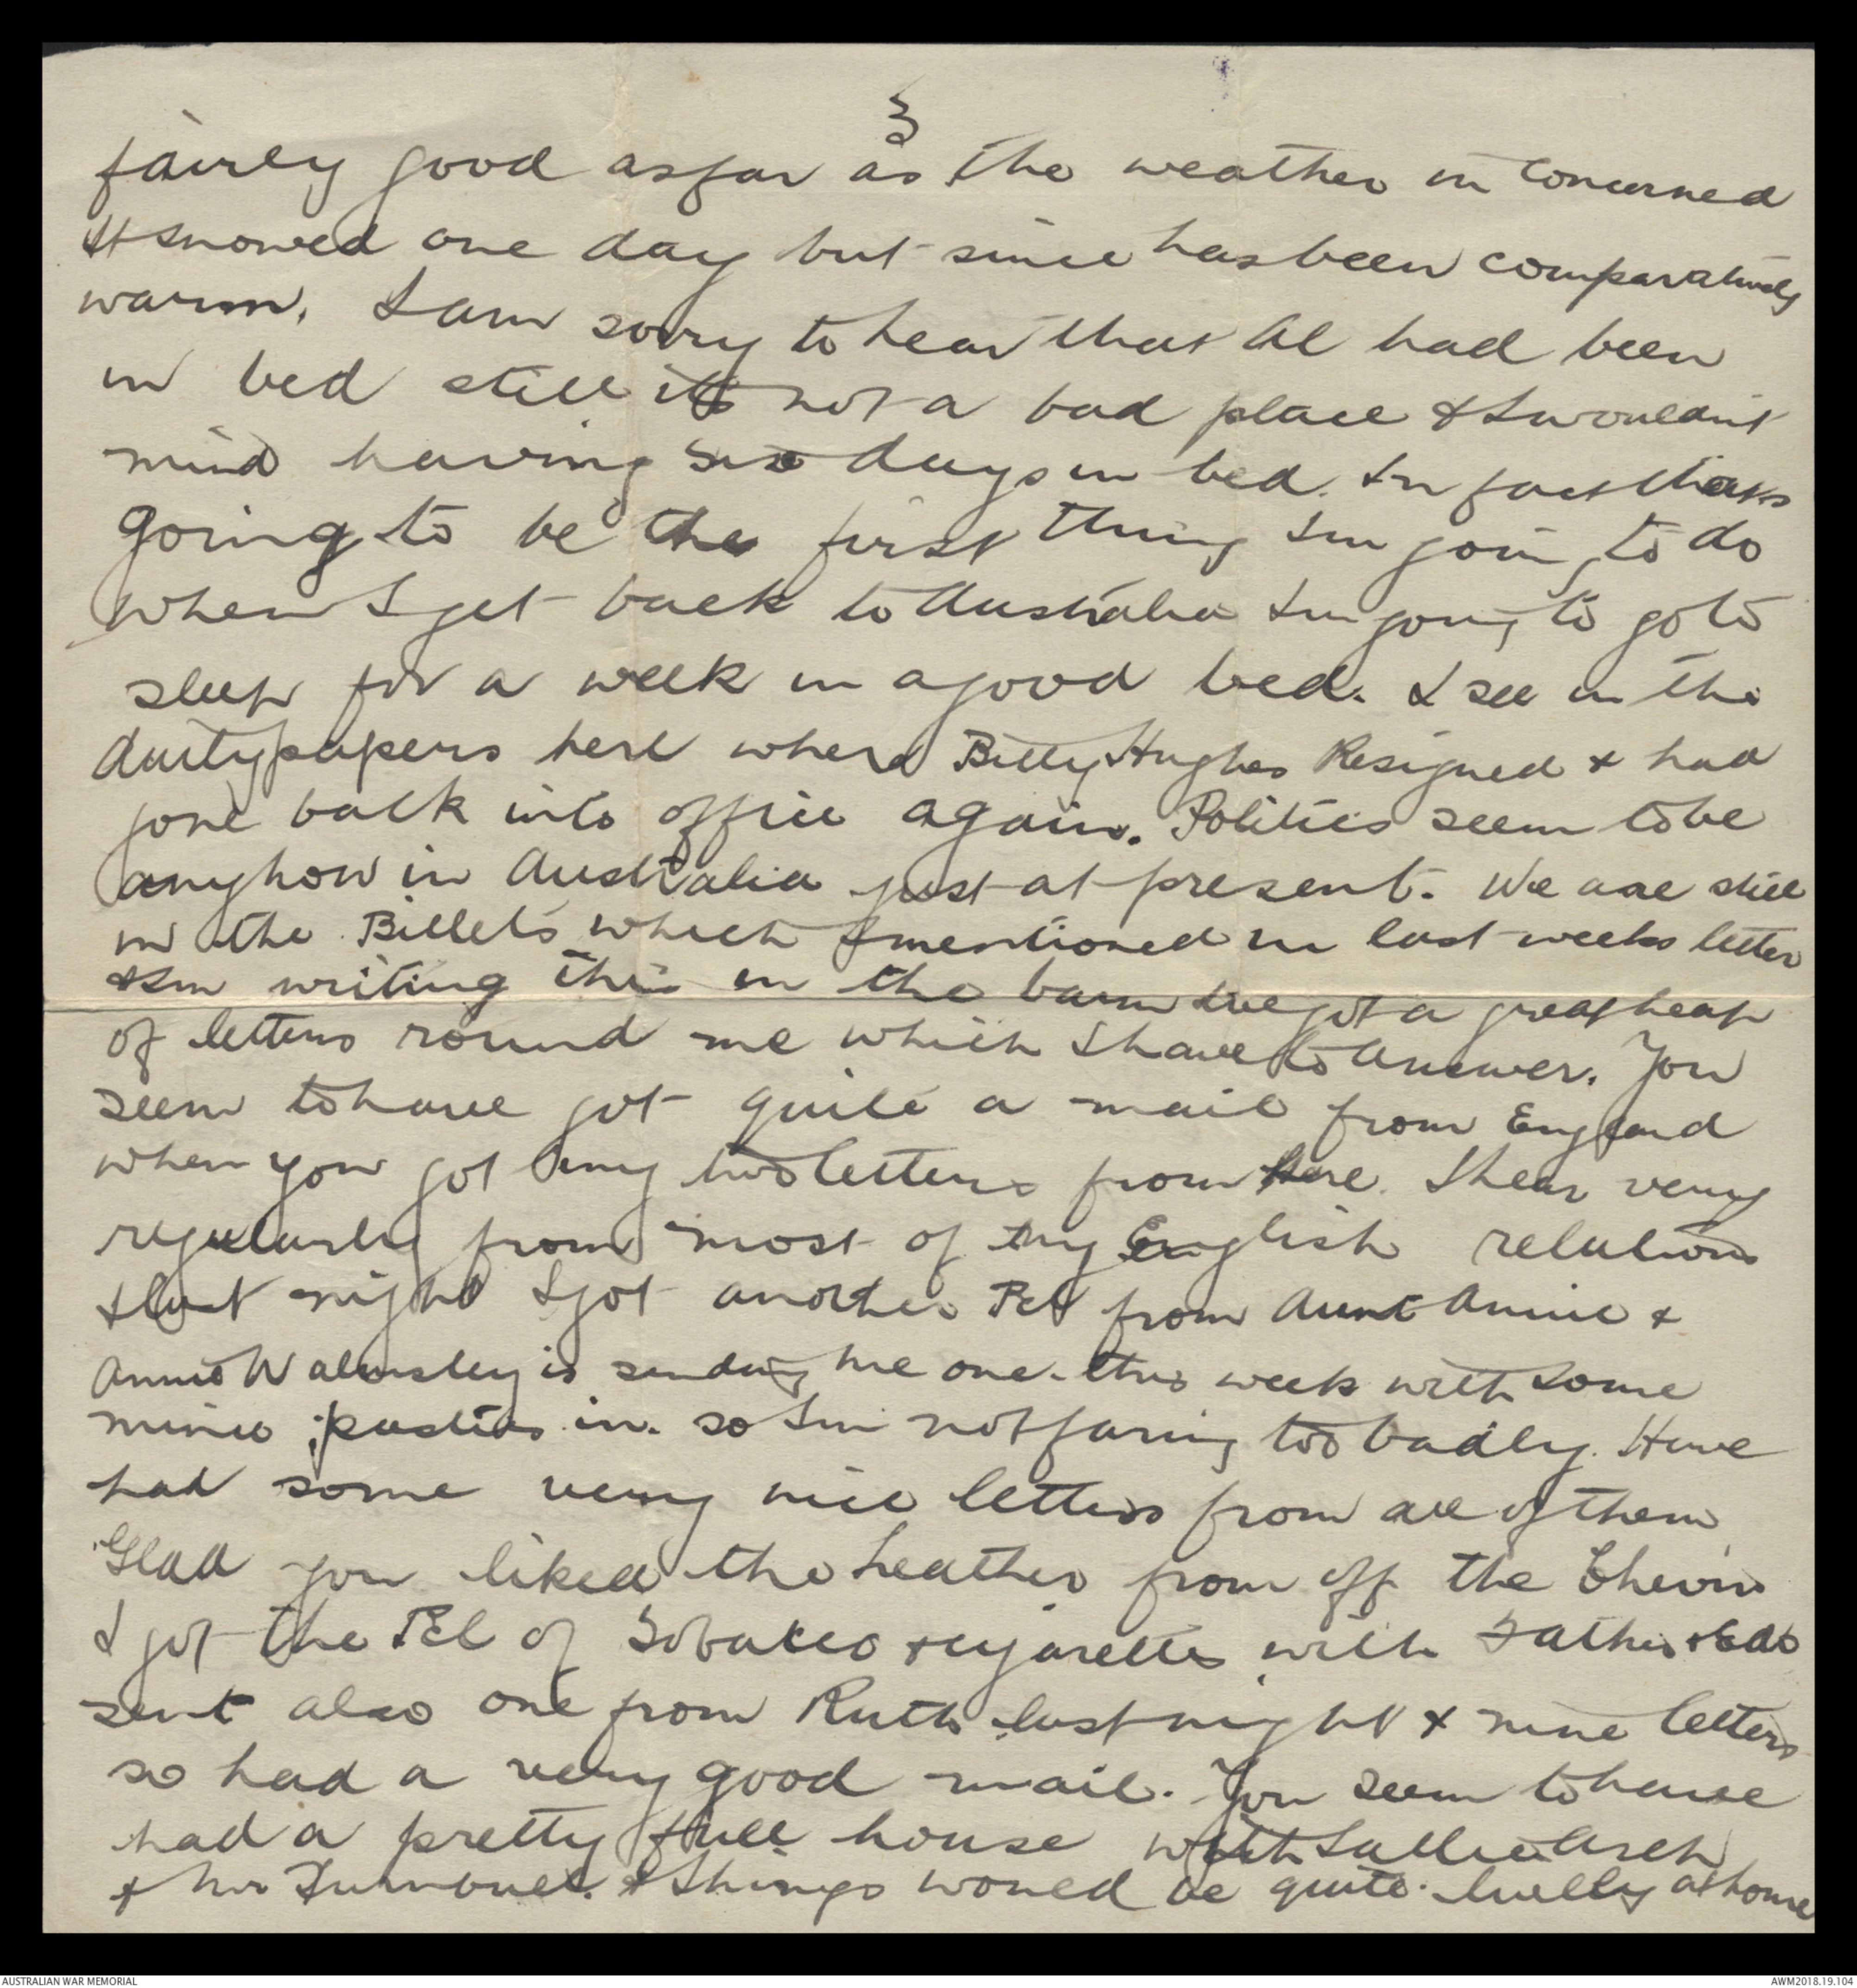 3
fairly good as far as the weather is concerned
It snowed one day but since has been comparatively
warm. I am sorry to hear that Al had been
in bed still its not a bad place & I wouldn't
mind having six days in bed. In fact thats
going to be the first thing Im going to do
when I get back to Australia Im going to go to
sleep for a week in a good bed. I see in the
daily papers here where Billy Hughes Resigned & had
gone back into office again. Politics seem to be
anyhow in Australia just at present. We are still
in the Billets which I mentioned in last weeks letter
& Im writing this in the barn Ive got a great heap
of letters round me which I have to answer. You
seem to have got quite a mail from England
when you got my two letters from here. I hear very
regularly from most of my English relations
& last night I got another Pcl from Aunt Annie &
Annie Walmsley is sending me one this week with some
mince pasties in. so Im not faring too badly. Have
had some very nice letters from all of them
Glad you liked the heather from off the Chevin
I got the Pcl of Tobacco & cigarettes with Father &
sent also one from Ruth last night & nine letters
so had a very good mail. You seem to have
had a pretty full house with Sallie Arch
& Mr Turnbull. & things would be quite lively at home
AUSTRALIAN WAR MEMORIAL
AWM2018.19.104